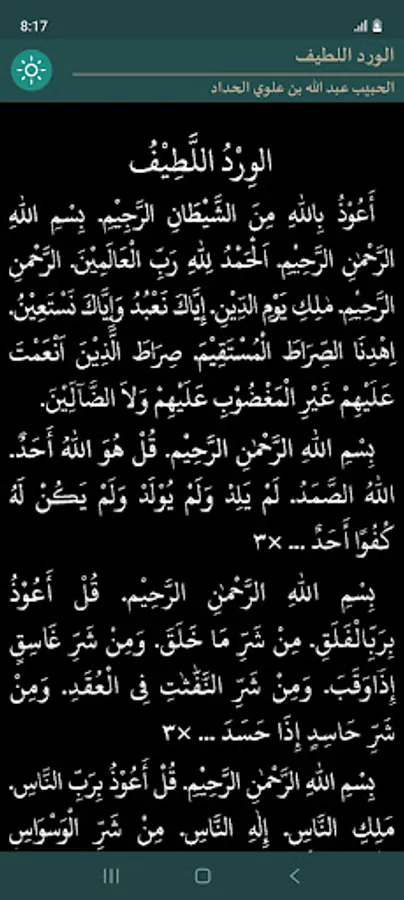 8:17
الورد اللطيف
الحبيب عبد الله بن علوي الحداد
الوِرْدُ اللَّطِيْفُ
أَعُوْذُ بِاللهِ مِنَ الشَّيْطَانِ الرَّجِيْمِ. بِسْمِ اللهِ
الرَّحْمٰنِ الرَّحِيْمِ. اَلْحَمْدُ لِلهِ رَبِّ الْعَالَمِيْنَ. الرَّحْمٰنِ
الرَّحِيْمِ. مٰلِكِ يَوْمِ الدِّيْنِ. إِيَّاكَ نَعْبُدُ وَإِيَّاكَ نَسْتَعِيْنُ.
اِهْدِنَا الصِّرَاطَ الْمُسْتَقِيْمَ. صِرَاطَ الَّذِيْنَ اَنْعَمْتَ
عَلَيْهِمْ غَيْرِ الْمَغْضُوْبِ عَلَيْهِمْ وَلاَ الضَّآلِّيْنَ.
بِسْمِ اللهِ الرَّحْمٰنِ الرَّحِيْمِ. قُلْ هُوَ اللهُ أَحَدٌ.
اَللهُ الصَّمَدُ. لَمْ يَلِدْ وَلَمْ يُوْلَدْ وَلَمْ يَكُنْ لَهُ
كُفُوًا أَحَدٌ ... ×٣
بِسْمِ اللهِ الرَّحْمٰنِ الرَّحِيْمِ. قُلْ أَعُوْذُ
بِرَبِّالْفَلَقِ. مِنْ شَرِّ مَا خَلَقَ. وَمِنْ شَرِّ غَاسِقٍ
إِذَاوَقَبَ. وَمِنْ شَرِّ النَّفّٰثٰتِ فِى الْعُقَدِ. وَمِنْ
شَرِّ حَاسِدٍ إِذَا حَسَدَ ... ×٣
بِسْمِ اللهِ الرَّحْمٰنِ الرَّحِيْمِ. قُلْ أَعُوْذُ بِرَبِّ النَّاسِ.
مَلِكِ النَّاسِ. إِلٰهِ النَّاسِ. مِنْ شَرِّ الْوَسْوَاسِ